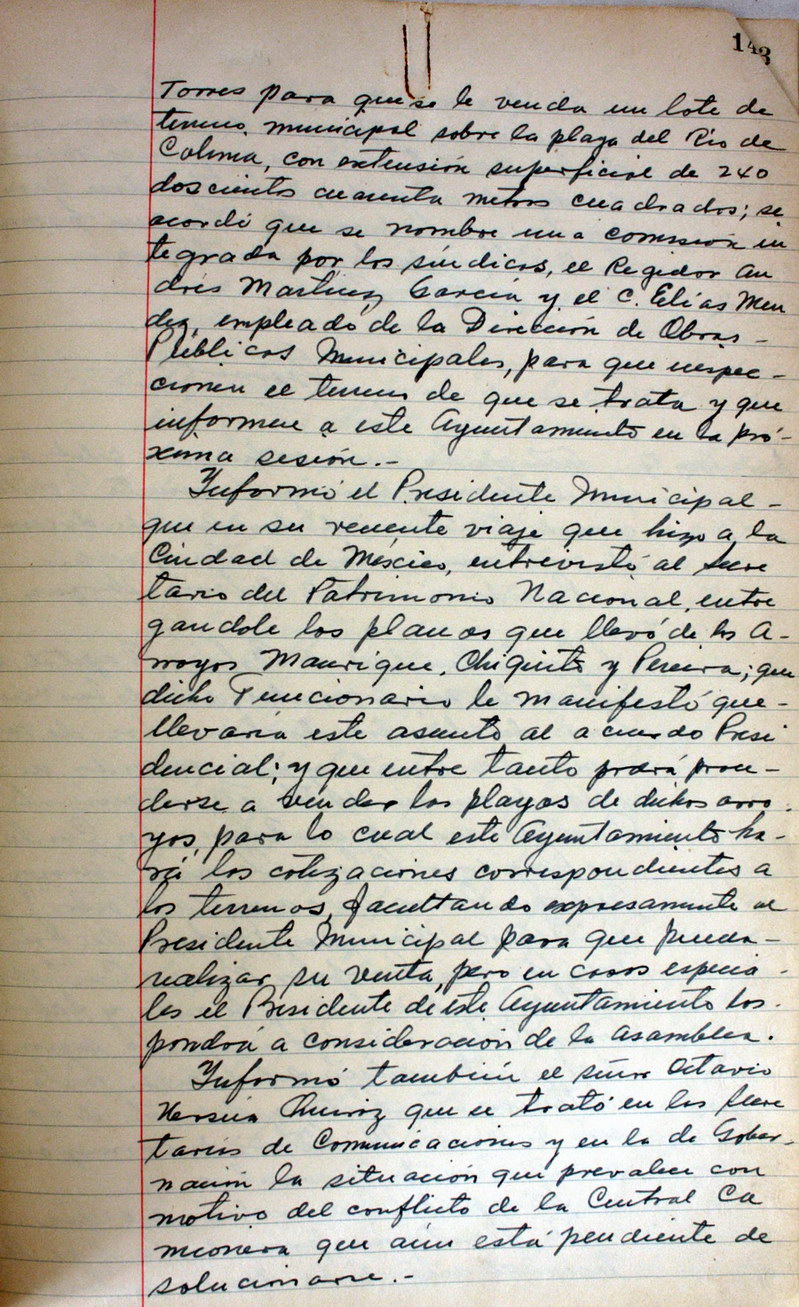 143
Torres para que se le venda un lote de
terreno, municipal sobre la playa del Río de
Colima, con extensión superficial de 240
doscientos cuarenta metros cuadrados; se
acordó que se nombre una comisión in
tegrada por los síndicos, el Regidor An
drés Martínez García y el C. Elías Men
dez, empleado de la Dirección de Obras-
Públicas Municipales, para que inspec-
cionen el terreno de que se trata y que
informen a este Ayuntamiento en la pró-
xima sesión.-
Informó el Presidente Municipal-
que en su reciente viaje que hizo a la
Ciudad de México, entrevistó al Secre
tario del Patrimonio Nacional, entre
gandole los planos que llevó de los A-
rroyos Manrique, Chiquito y Pereira; que
dicho Funcionario le manifestó que-
llevaría este asunto al acuerdo Presi
dencial; y que entre tanto podrá proce-
derse a vender las playas de dichos arro-
yos, para lo cual este Ayuntamiento ha-
rá las cotizaciones correspondientes a
los terrenos, facultando expresamente al
Presidente Municipal para que pueda-
realizar su venta, pero en casos especia-
les el Presidente de este Ayuntamiento los-
pondrá a consideración de la Asamblea.
Informó también el señor Octavio
Quiroz que se trató en las Secre
tarías de Comunicaciones y en la de Gober-
nación la situación que prevalece con
motivo del conflicto de la Central Ca
mionera que aún está pendiente de
solucionarse.-